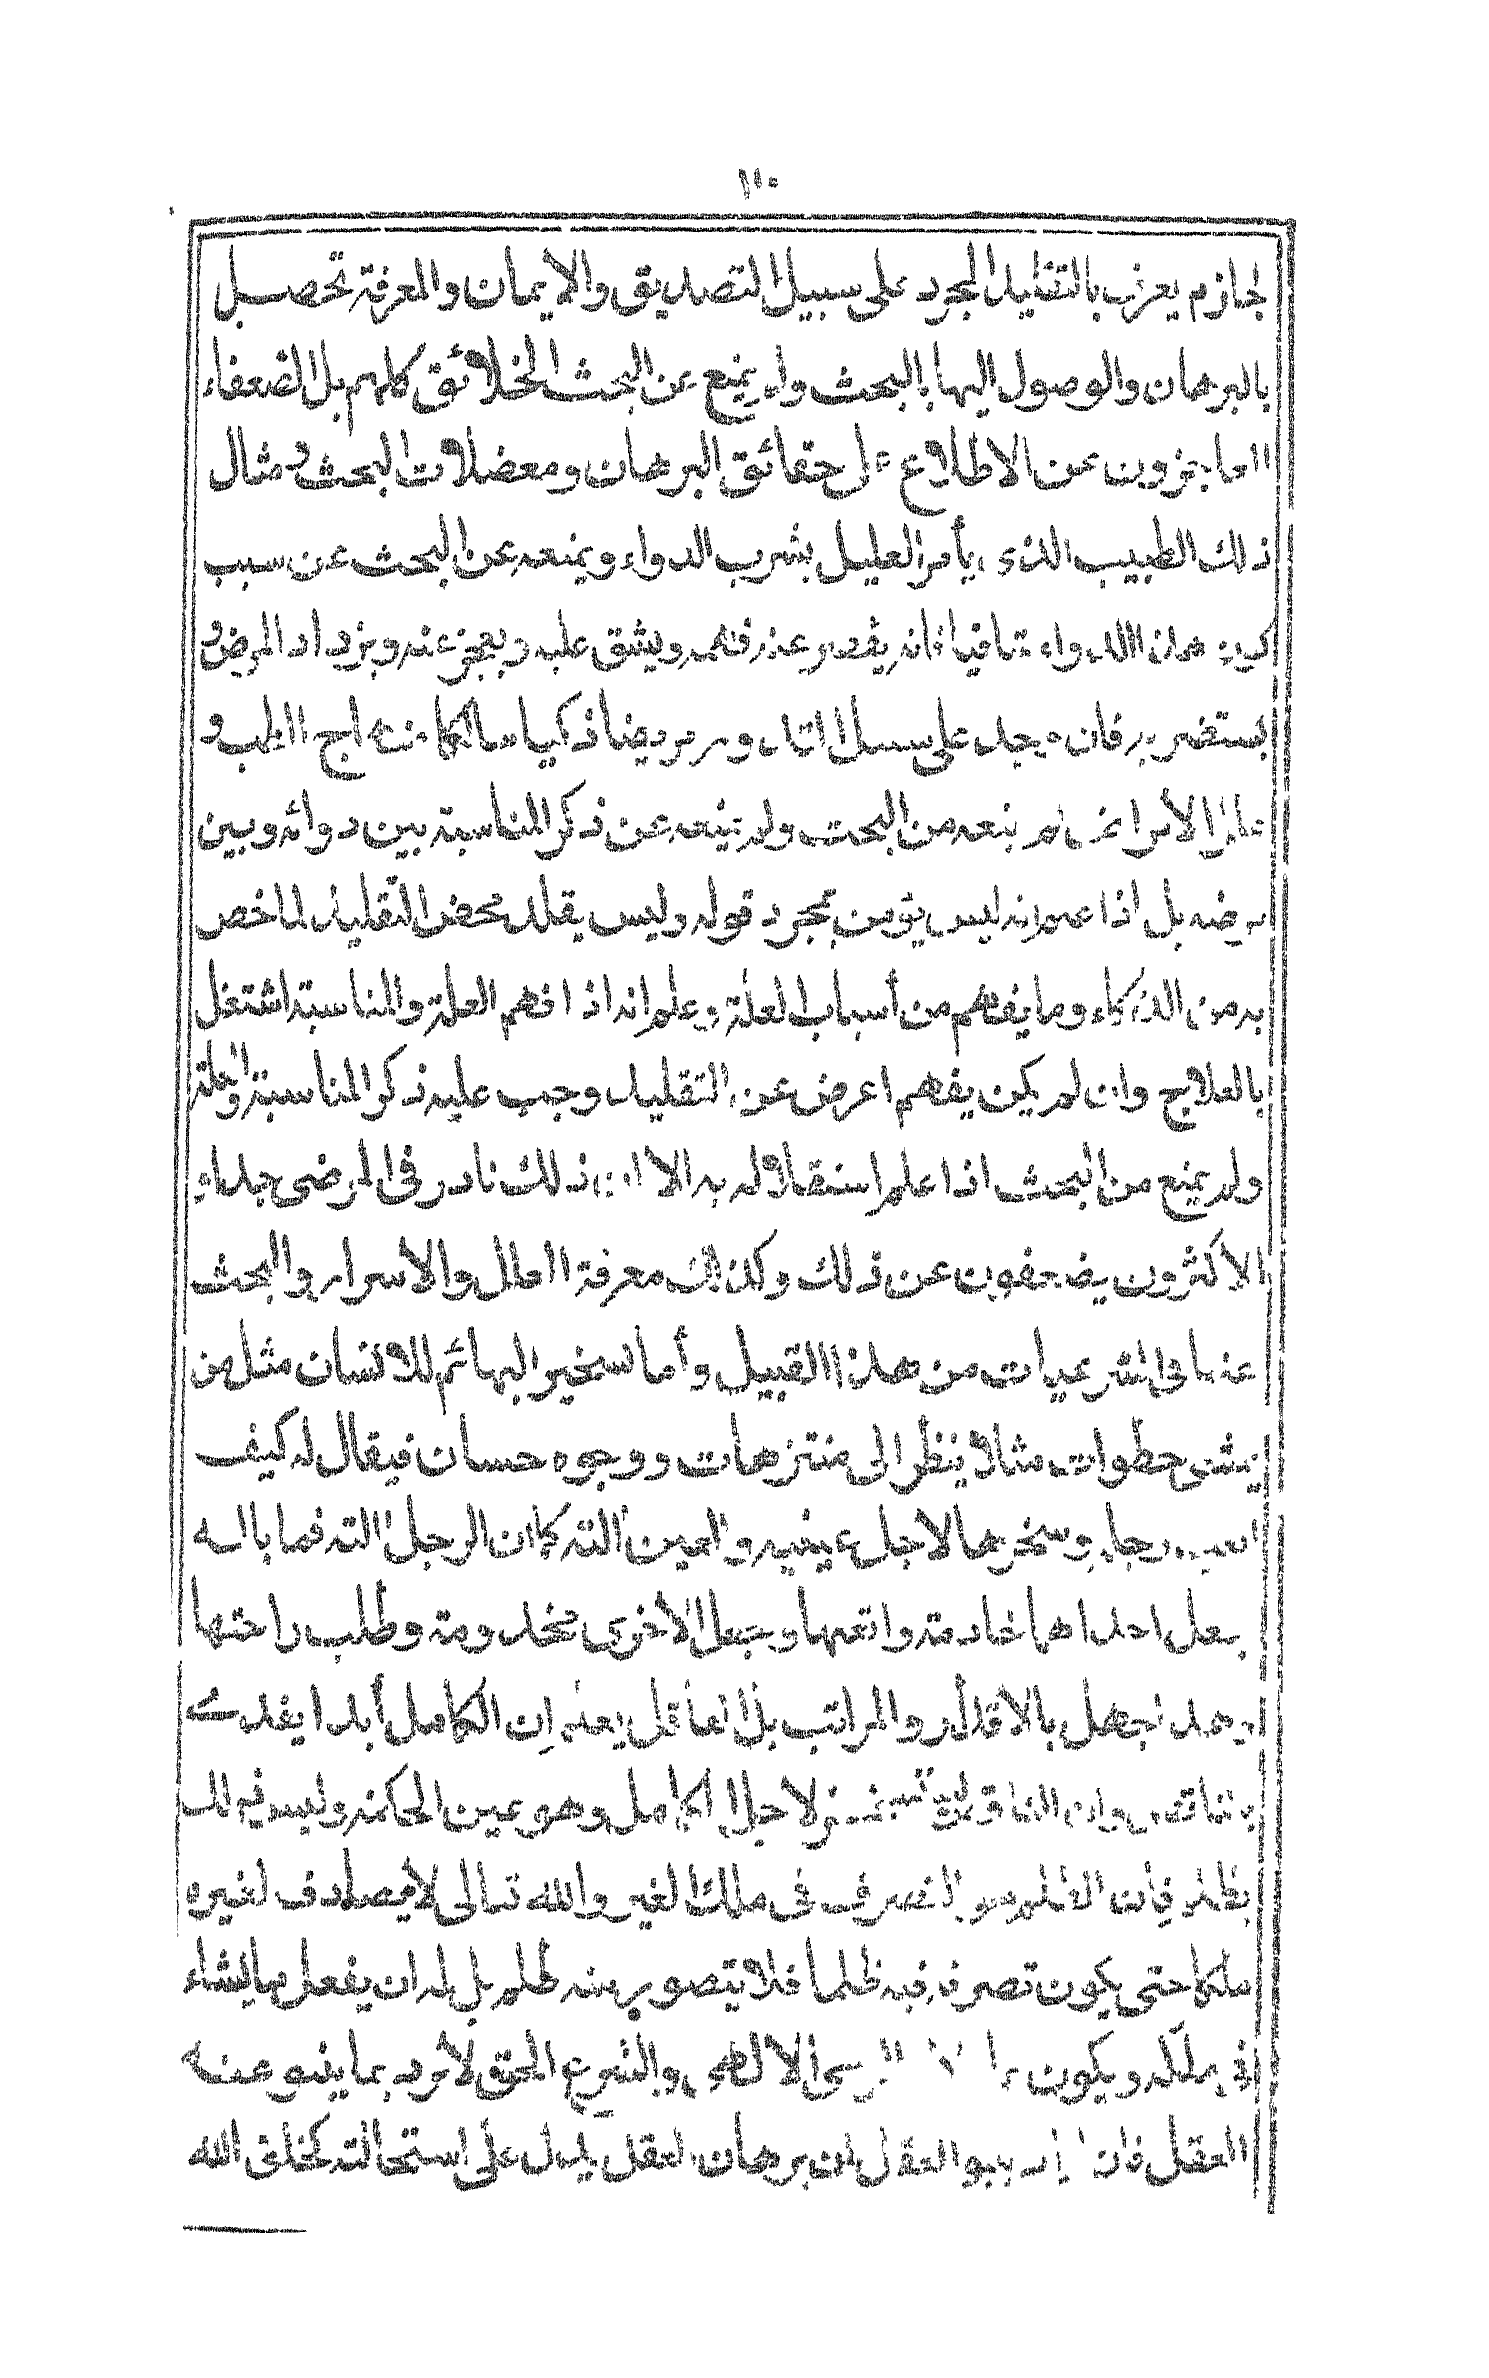 ١١٠
لجازم يعرف بالتقليد المجرد على سبيل التصديق والايمان والمعرفة تحصل
بالبرهان والوصول اليها بالبحث ولم يمنع عن البحث الخلائق كلهم بل الضعفاء
العاجزون عن الاطلاع على حقائق البرهان ومعضلات البحث ومثال
ذلك الطبيب الذى يأمر العليل بشرب الدواء ويمنعه عن البحث عن سبب
كون هذا الدواء شافيا فانه يقصر عنه فهمه ويشق عليه ويعجز عنه ويزداد المرض و
يستضر به فان وجد على سبيل مريضا ذكيا عالما بمنهاج الطب و
علل الأمراض لم يمنعه من البحث ولم يمنعه عن ذكر المناسبة بين دوائه وبين
مرضه بل اذا علم انه ليس يؤمن بمجرد قوله وليس يقلد محض التقليد لما خص
به من الذكاء وما يفهم من أسباب العلة وعلم انه اذا فهم العلة والمناسبة اشتغل
بالعلاج وان لم يكن يفهم اعرض عن التقليد وجب عليه ذكر المناسبة والعلة
ولم يمنع من البحث اذا علم استقلاله به الا ان ذلك نادر فى المرضى جداء
الأكثرون يضعفون عن ذلك وكذلك معرفة العلل والاسرار والبحث
عنها فى الشرعيات من هذا القبيل وأما تسخير البهائم للانسان مثل من
يمشى خطوات مثلا ينظر الى منتزهات ووجوه حسان فيقال له كيف
رجله وسخرها لاجل عينيه والعين آلته كما ان الرجل آلته فما باله
يعل احداها خادمة واتعبها وجعل الأخرى مخدومة وطلب راحتها
وهذا جهل بالأقدار والمراتب بل العاقل يعلم ان الكامل أبدا يفدى
بالناقص وان الناقص لاجل الكامل وهو عين الحكمة وليس فيه لك
بظلم فان الظلم هو التصرف فى ملك الغير والله تعالى لا يصادف لغيره
ملكا حتى يكون تصرفه فيه ظلما فلا يتصور منه ظلم بل له ان يفعل ما يشاء
فى ملكه ويكون الالهى والشرع الحق لا يرد بما ينبو عنه
العقل فان ينبو العقل ان برهان العقل يدل على استحالته كخلق الله